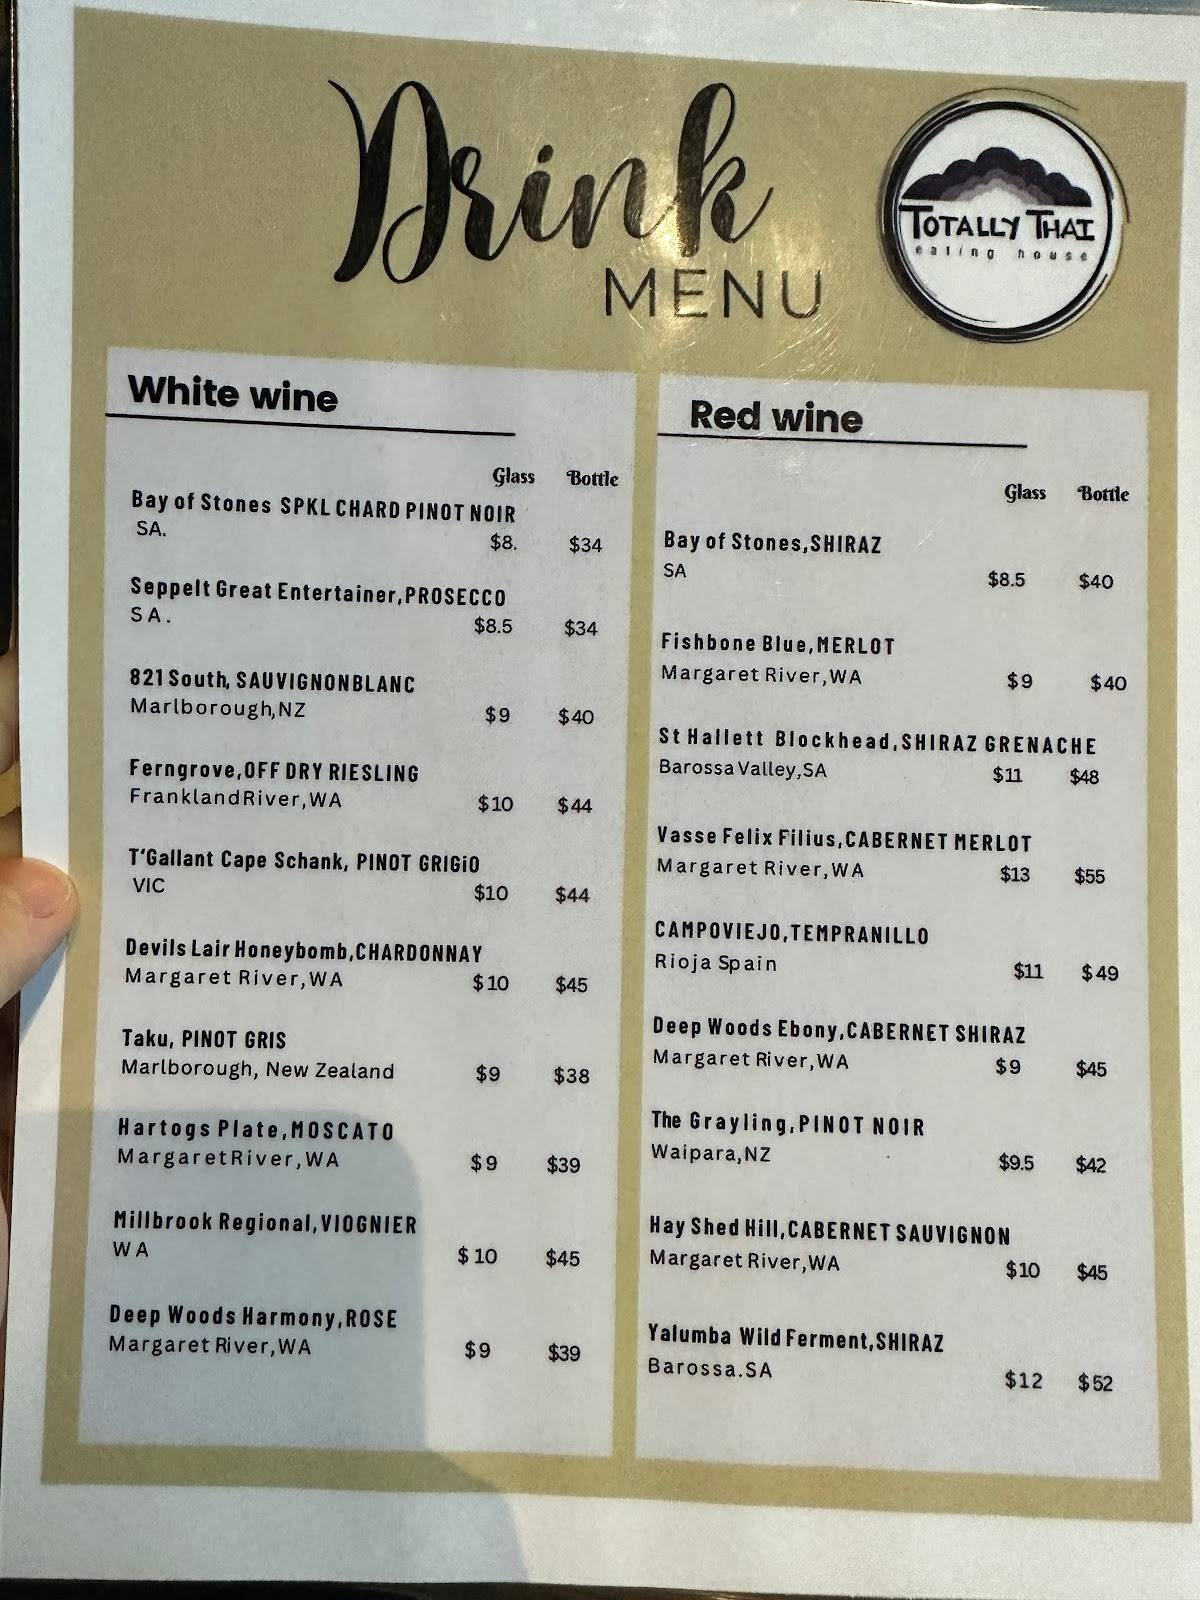 Drink
MENU
TOTALLY THAI
eating house
White wine
Glass Bottle
Bay of Stones SPKL CHARD PINOT NOIR
SA.
$8. $34
Seppelt Great Entertainer,PROSECCO
SA.
$8.5 $34
821 South, SAUVIGNONBLANC
Marlborough,NZ $9 $40
Ferngrove,OFF DRY RIESLING
FranklandRiver,WA $10 $44
T'Gallant Cape Schank, PINOT GRIGiO
VIC $10 $44
Devils Lair Honeybomb,CHARDONNAY
Margaret River,WA $10 $45
Taku, PINOT GRIS
Marlborough, New Zealand $9 $38
Hartogs Plate,MOSCATO
MargaretRiver,WA $9 $39
Millbrook Regional,VIOGNIER
WA $10 $45
Deep Woods Harmony,ROSE
Margaret River,WA $9 $39
Red wine
Glass Bottle
Bay of Stones,SHIRAZ
SA $8.5 $40
Fishbone Blue,MERLOT
Margaret River,WA $9 $40
St Hallett Blockhead,SHIRAZ GRENACHE
Barossa Valley,SA $11 $48
Vasse Felix Filius,CABERNET MERLOT
Margaret River,WA $13 $55
CAMPOVIEJO,TEMPRANILLO
Rioja Spain $11 $49
Deep Woods Ebony,CABERNET SHIRAZ
Margaret River,WA $9 $45
The Grayling,PINOT NOIR
Waipara,NZ $9.5 $42
Hay Shed Hill,CABERNET SAUVIGNON
Margaret River,WA $10 $45
Yalumba Wild Ferment,SHIRAZ
Barossa.SA $12 $52